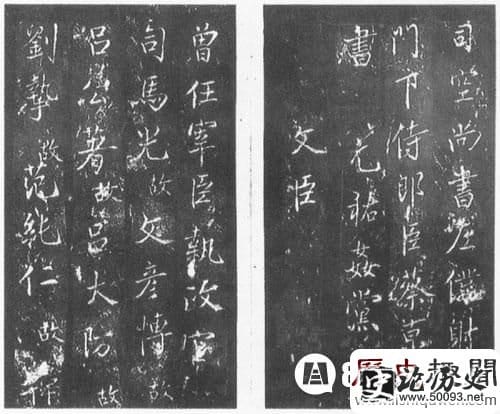 司空尚書左僕射
門下侍郎臣蔡京
書 元祐姦黨
文臣
曾任宰臣執政官
司馬光 故 文彥博 故
呂公著 故 呂大防 故
劉摯 故 范純仁 故
www.50093.net